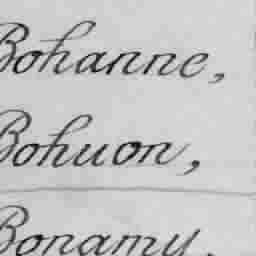 Bohanne,
Bohuon,
Bonamy,